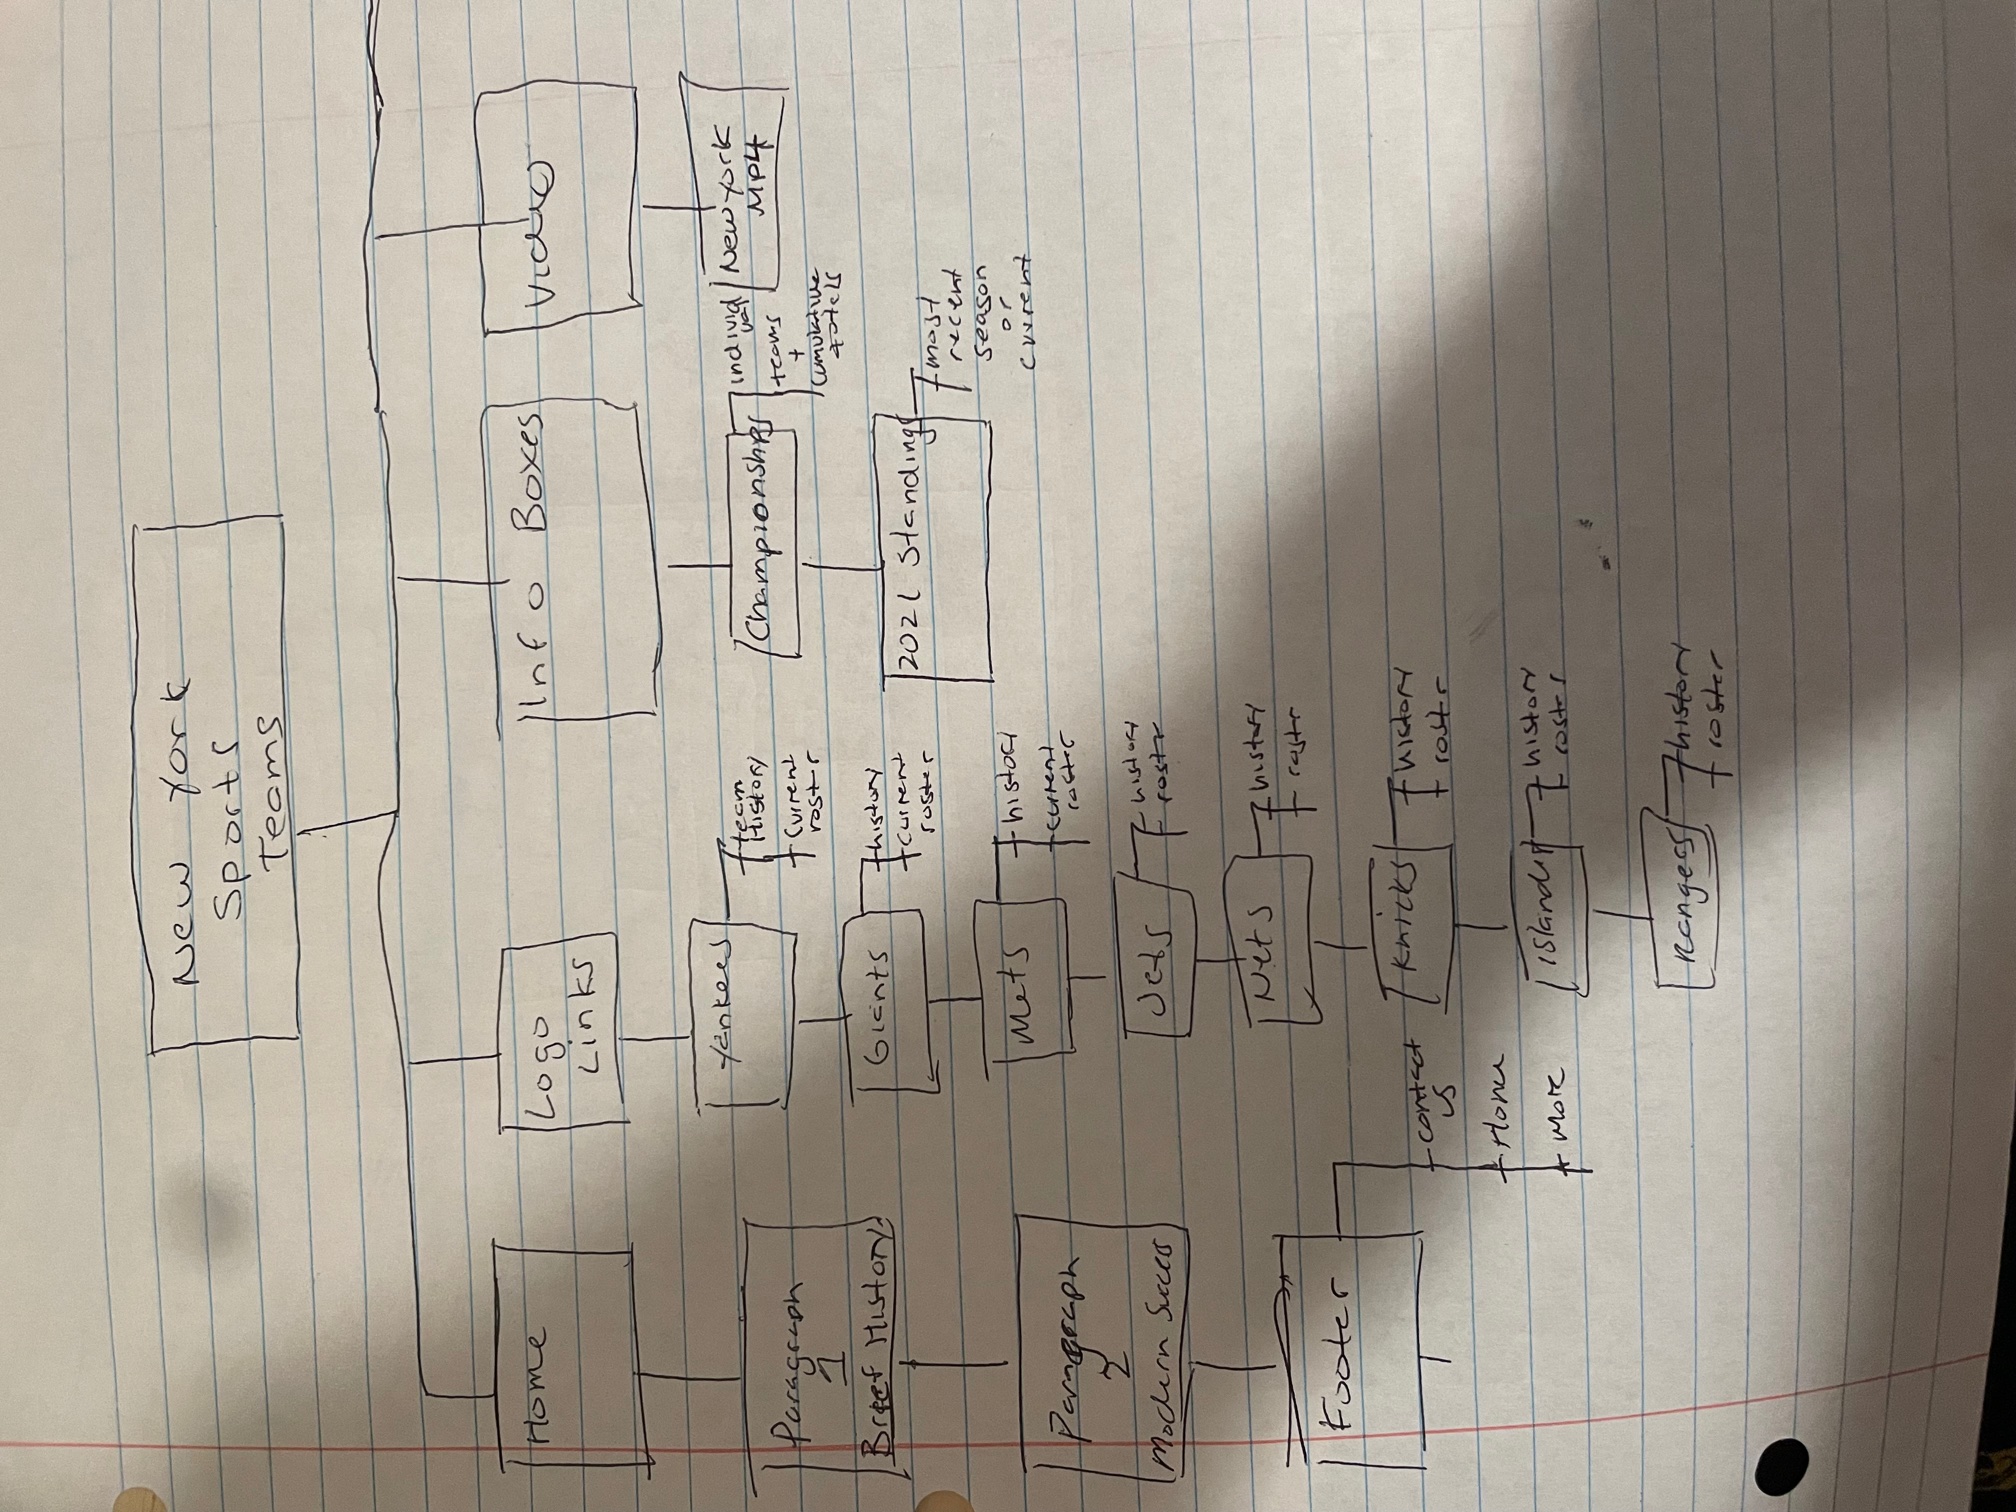 New York
Sports
Teams
Home
Paragraph
1
Breef History
Paragraph
2
Modern Success
Footer
contact
us
Home
more
Logo
Links
Yankees
team
History
current
roster
Giants
history
current
roster
Mets
history
current
roster
Jets
history
rostr
Nets
history
rostr
Knicks
history
roster
history
roster
Rangers
history
roster
Info Boxes
Championships
individ
ual
teams
+
cumulative
totals
2021 Standings
most
recent
season
or
current
Video
New York
MP4